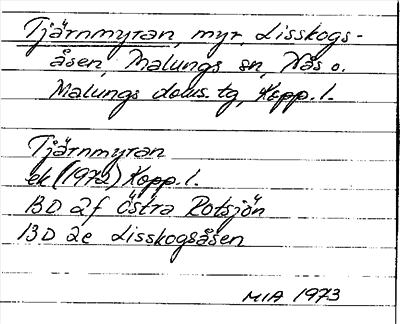 Tjärnmyran, myr, Lisskogs-
åsen, Malungs sn, Nås o.
Malungs doms. tg, Kopp. l.
Tjärnmyran
ek (1972) Kopp. l.
13D 2f Östra Rotsjön
13D 2e Lisskogsåsen
MIA 1973